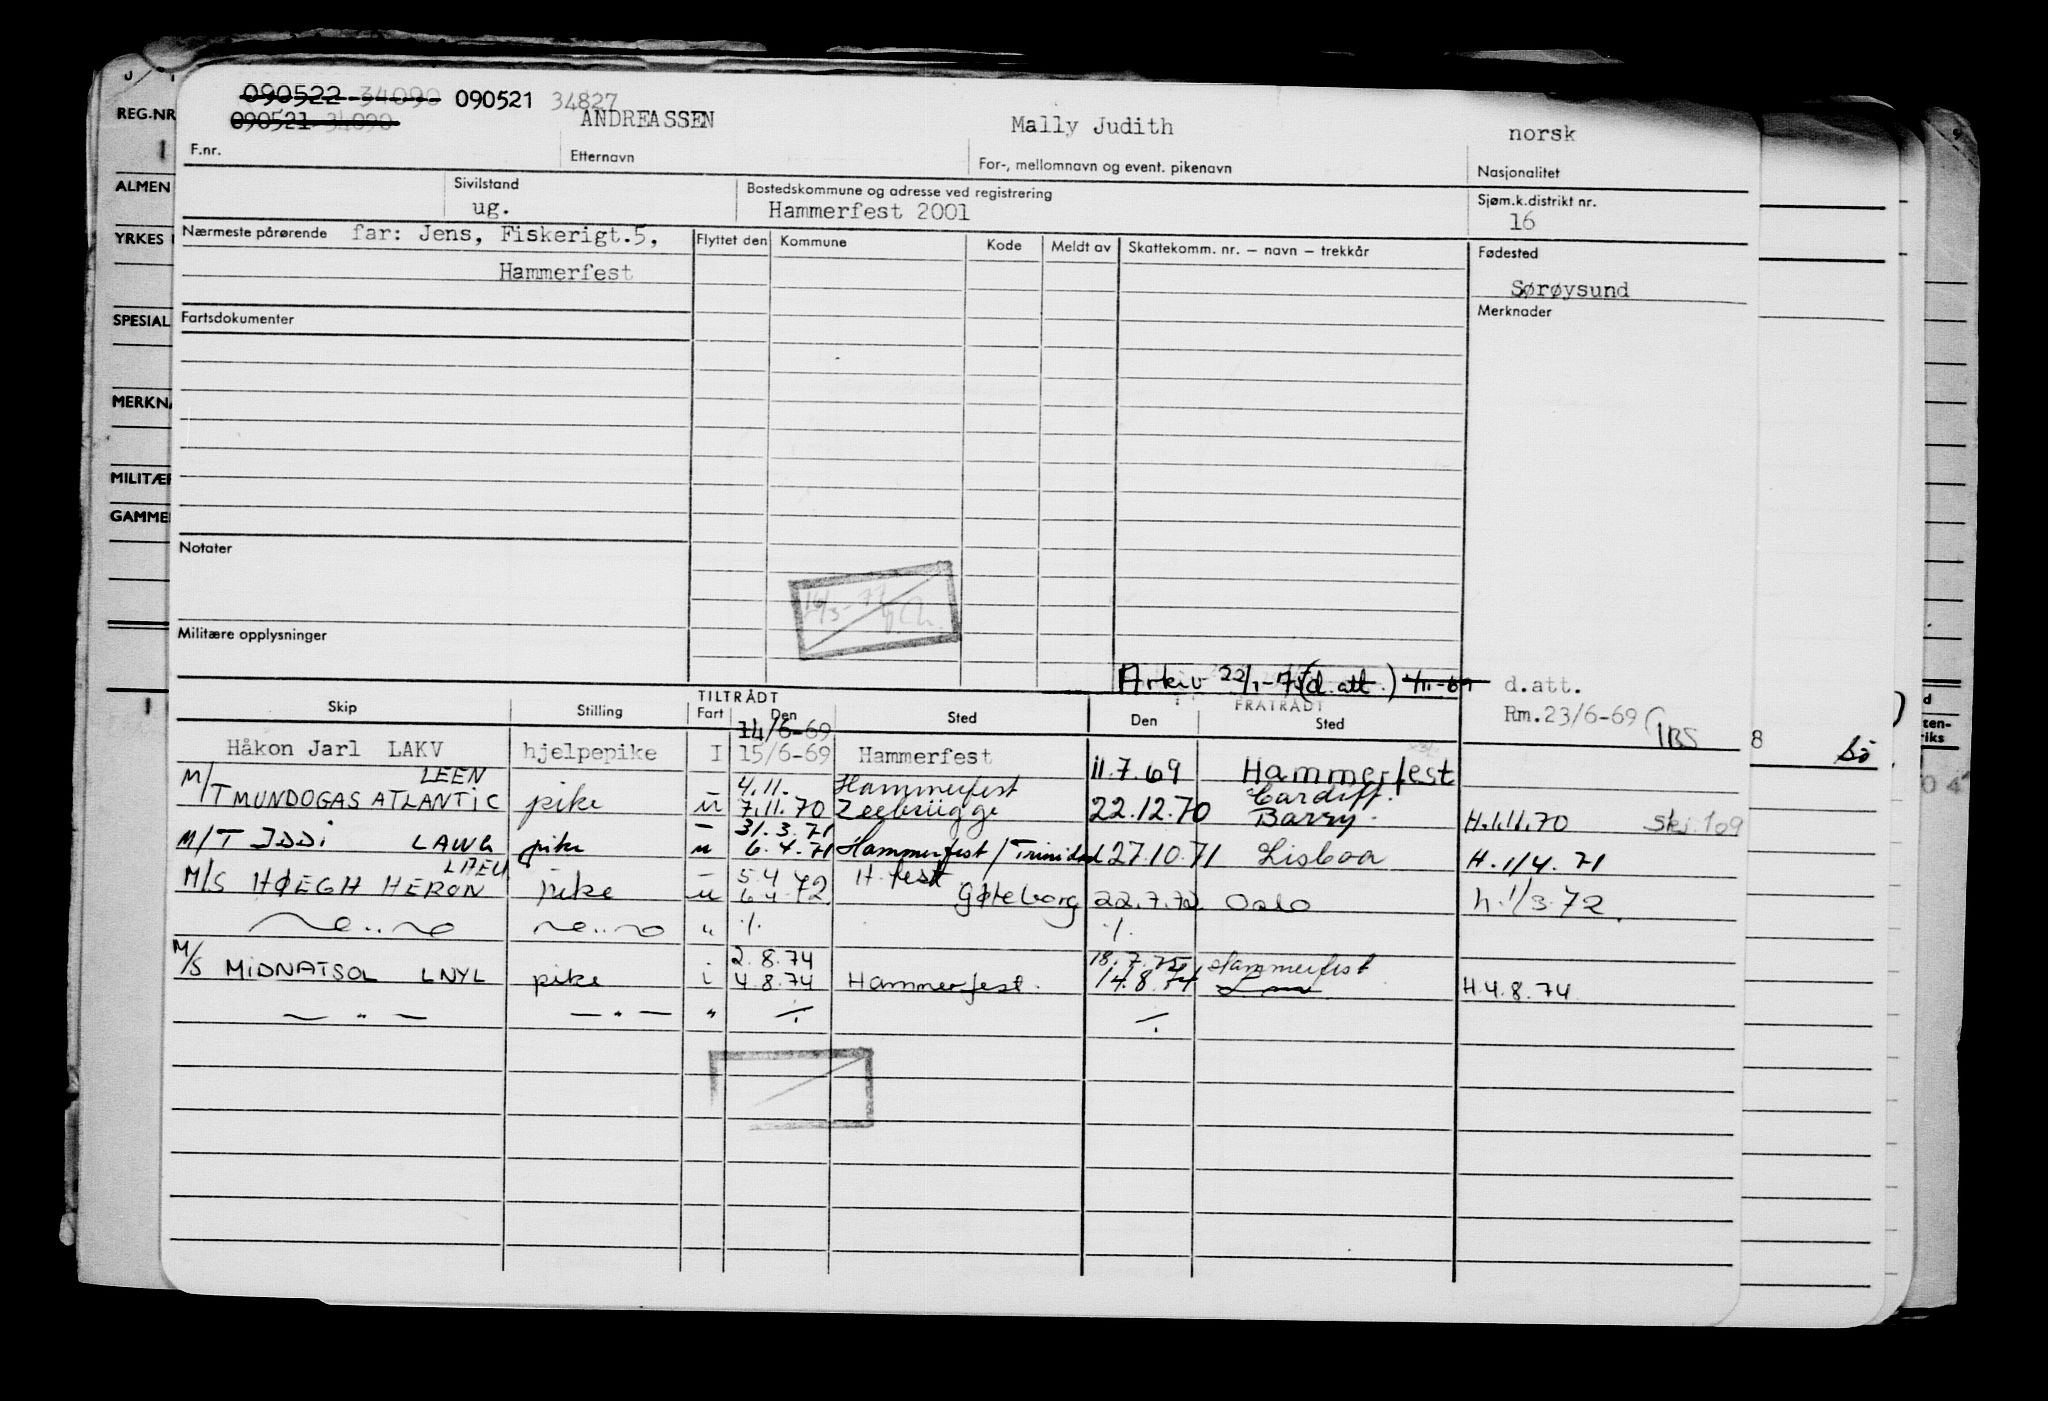 090522 34090 090521 34827
090521 34090 ANDREASSEN Mally Judith norsk
F.nr. Etternavn For-, mellomnavn og event. pikenavn Nasjonalitet
Sivilstand Bostedskommune og adresse ved registrering Sjøm.k.distrikt nr.
ug. Hammerfest 2001 16
Nærmeste pårørende far: Jens, Fiskerigt.5, Flyttet den Kommune Kode Meldt av Skattekomm. nr. – navn – trekkår Fødested
Hammerfest Sørøysund
Fartsdokumenter Merknader
Notater
Militære opplysninger
Arkiv 22/1-75 (d.att.) 4/11-69 d.att.
Rm.23/6-69 (IBS
TILTRÅDT FRATRÅDT
Skip Stilling Fart Den Sted Den Sted
14/6-69
Håkon Jarl LAKV hjelpepike I 15/6-69 Hammerfest 11.7.69 Hammerfest
LEEN 4.11. Hammerfest Cardiff.
M/T MUNDOGAS ATLANTIC pike u 7.11.70 Zeebrügge 22.12.70 Barry. H.1.11.70 Skj.109
31.3.71
M/T IDDI LAWG pike u 6.4.71 Hammerfest/Trinidad 27.10.71 Lisboa H.1/4.71
5.4 H.fest
M/S HØEGH HERON pike u 6.4.72 Gøteborg 22.7.72 Oslo h.1/3.72.
" ./. ./.
2.8.74 18.7.75 Hammerfest
M/S MIDNATSOL LNYL pike i 4.8.74 Hammerfest. 14.8.74 H.4.8.74
— " — — " — " ./. ./.
REG.NR
ALMEN
YRKES
SPESIAL
MERKNA
MILITÆR
GAMME
8